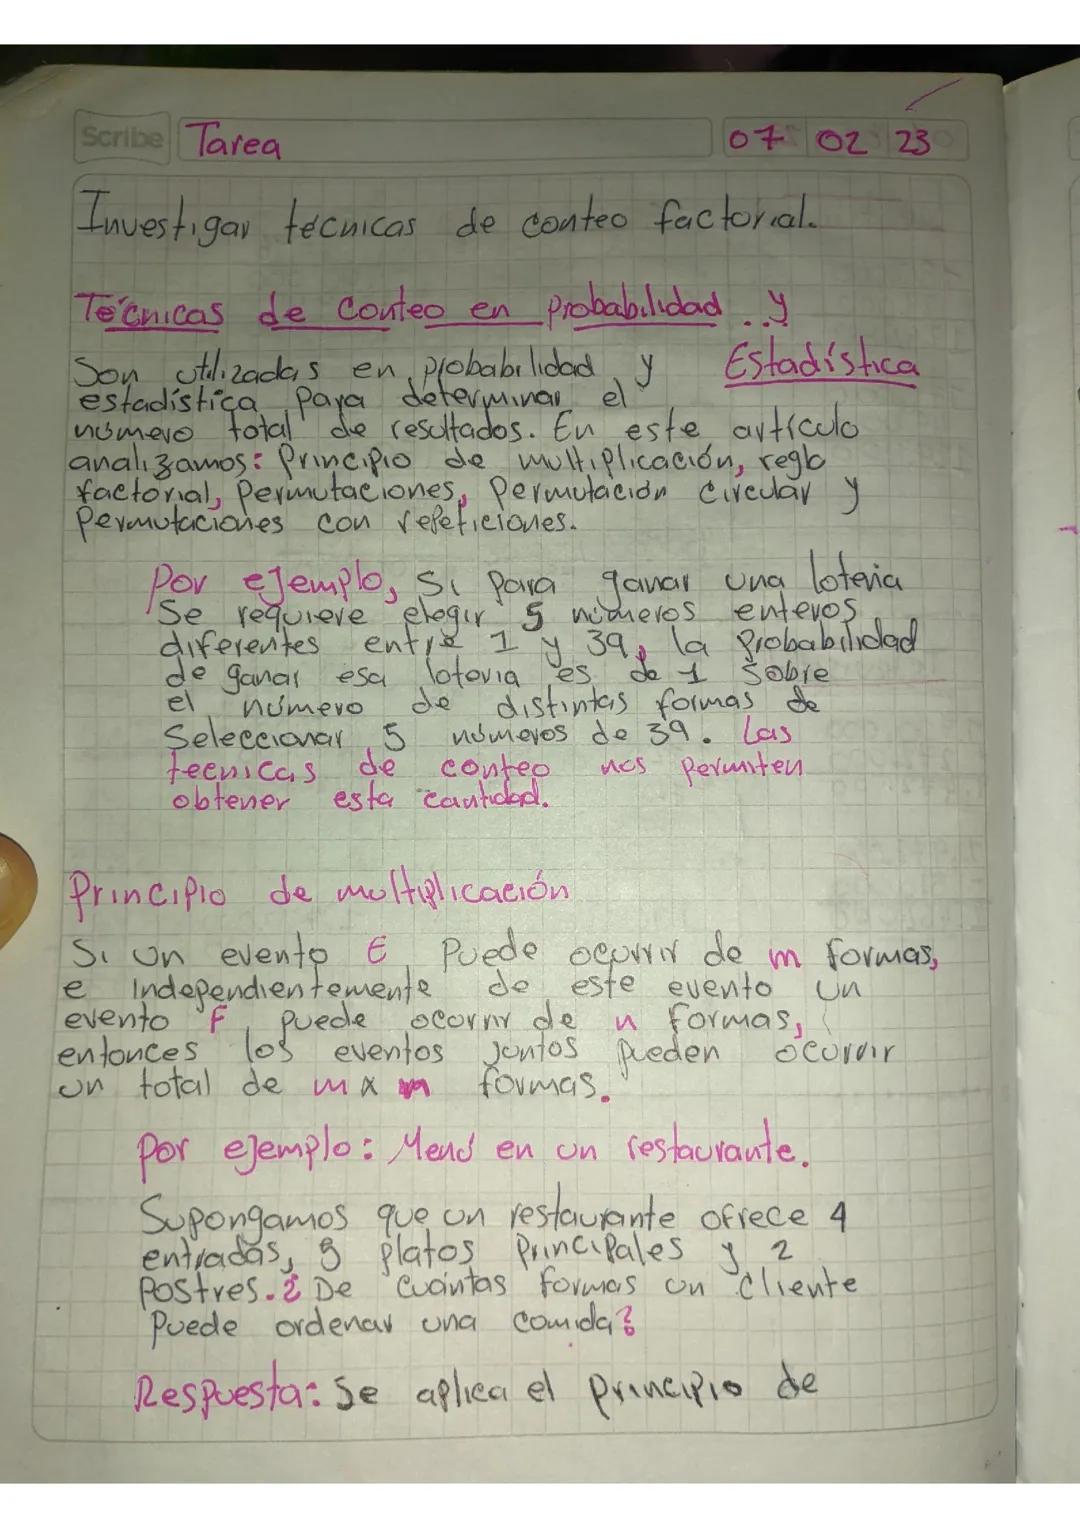 Scribe Tarea 07 02 23
Investigar técnicas de conteo factorial.
Técnicas de Conteo en probabilidad y
Estadística
Son utilizadas en probabilidad y
estadística para determinar el
número total de resultados. En este artículo
analizamos: Principio de multiplicación, regla
factorial, Permutaciones, Permutación Circular y
Permutaciones con repeticiones.
Por ejemplo, Si para ganar una lotería
Se requiere elegir 5 números enteros
diferentes entre 1 y 39, la Probabilidad
de ganar esa lotería es de 1 sobre
el número de distintas formas de
Seleccionar 5 números de 39. Las
tecnicas de conteo nos permiten
obtener esta cantidad.
Principio de multiplicación
Si un evento E Puede ocurrir de m formas,
e Independientemente de este evento un
evento F puede ocorrir de n formas,
entonces los eventos juntos pueden ocurrir
un total de m x n formas.
Por ejemplo: Menú en un restaurante.
Supongamos que un restaurante ofrece 4
entradas, 5 platos Principales y 2
Postres. ¿De cuántas formas un Cliente
Puede ordenar una comida?
Respuesta: Se aplica el Principio de